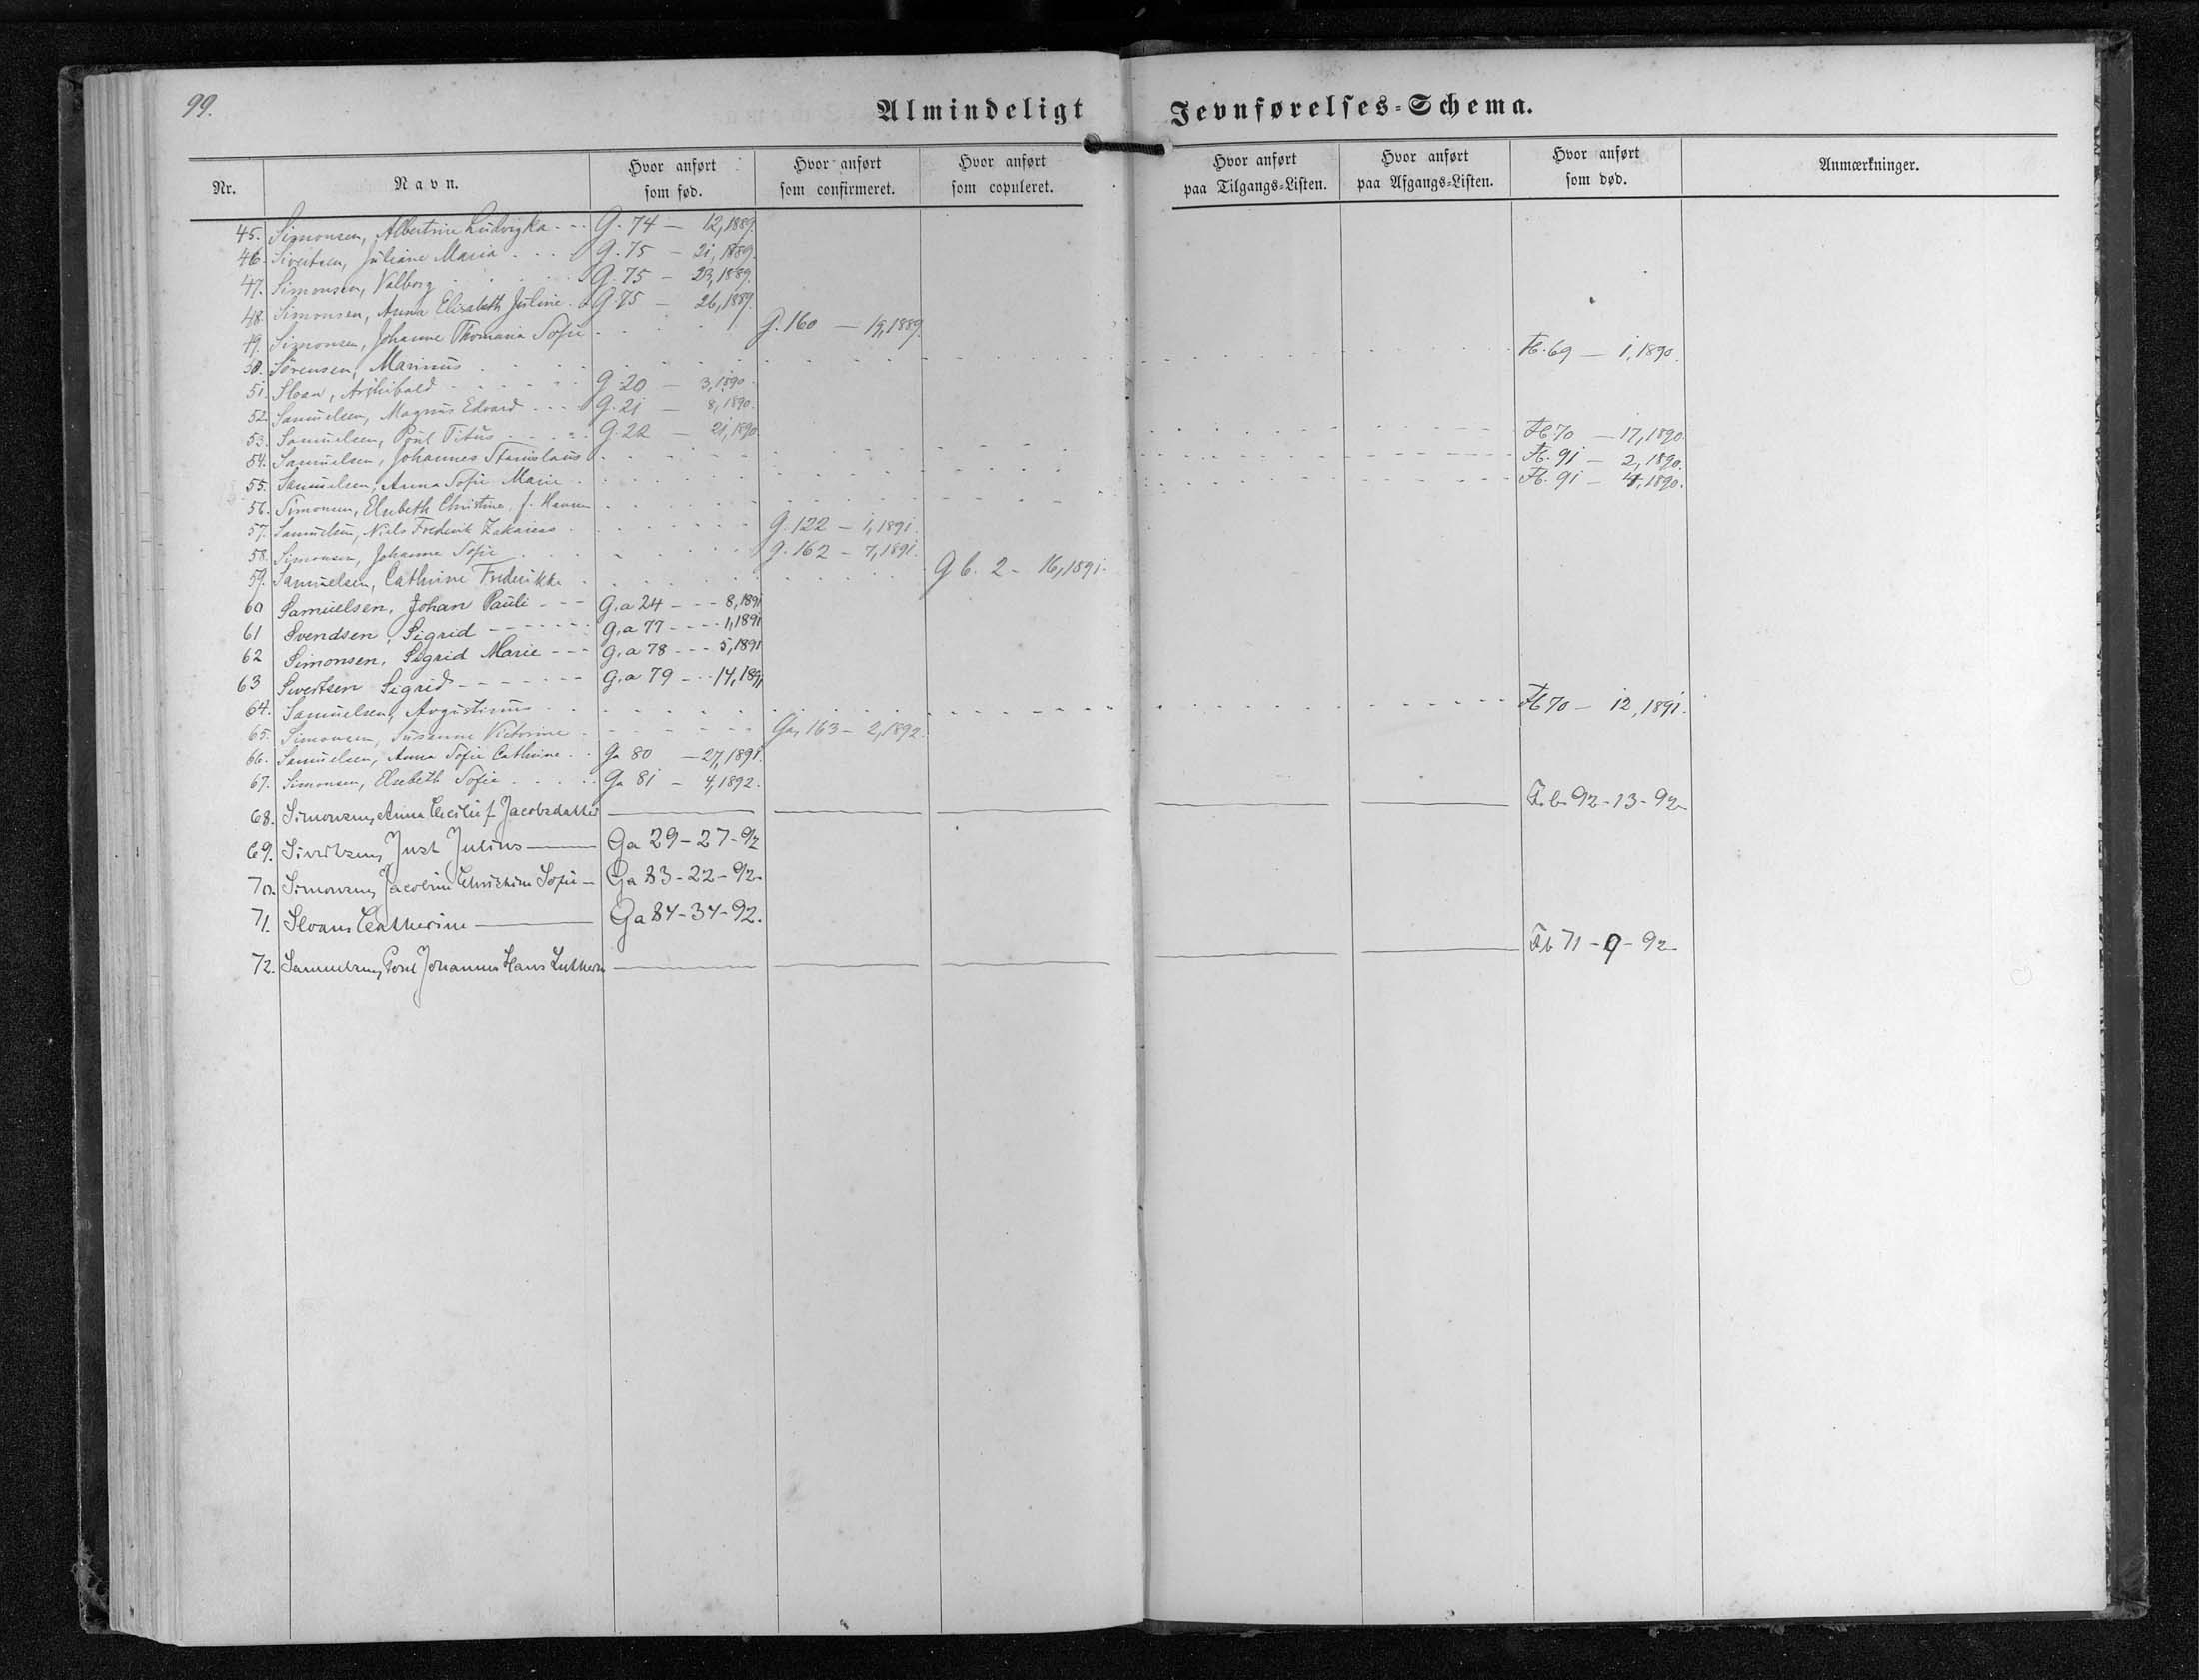 99.
Almindeligt Jevnførelses-Schema.
Nr. Navn. Hvor anført som fød. Hvor anført som confirmeret. Hvor anført som copuleret. Hvor anført paa Tilgangs-Listen. Hvor anført paa Afgangs-Listen. Hvor anført som død. Anmærkninger.
45. Simonsen, Albertine Ludvigka - - G. 74 — 12, 1889.
46. Sivertsen, Juliane Maria . . . G. 75 — 21, 1889.
47. Simonsen, Valborg . . . G. 75 — 23, 1889.
48. Simonsen, Anna Elisabeth Juline . G. 75 — 26, 1889.
49. Simonsen, Johanne Thomania Sofie . . . G. 160 — 15, 1889.
50. Sörensen, Marinus . . . Fb. 69 — 1, 1890.
51. Sloan, Archibald . . . G. 20 — 3, 1890.
52. Samuelsen, Magnus Edvard . . . G. 21 — 8, 1890.
53. Samuelsen, Poul Titus . . . G. 22 — 21, 1890.
54. Samuelsen, Johannes Stanislaus . . . Fb 70 — 17, 1890.
55. Samuelsen, Anna Sofie Marie . . . Fb. 91 — 2, 1890.
56. Simonsen, Elsebeth Christine f. Hansen . . . Fb. 91 — 4, 1890.
57. Samuelsen, Niels Frederik Zakarias . . . G. 122 — 1, 1891.
58. Simonsen, Johanna Sofie . . . G. 162 — 7, 1891.
59. Samuelsen, Cathrine Frederikke . . . G b. 2 - 16, 1891.
60 Samuelsen, Johan Pauli - - - G. a 24 - - - 8, 1891
61 Svendsen, Sigrid - - - G. a 77 - - - - 1, 1891
62 Simonsen, Sigrid Marie - - - G. a 78 - - - 5, 1891
63 Sivertsen Sigrid - - - G. a 79 - - - 14, 1891
64. Samuelsen, Augustinus . . . Fb 70 — 12, 1891.
65. Simonsen, Susanne Victorine . . . Ga, 163 — 2, 1892.
66. Samuelsen, Anna Sofie Cathrine . . Ga 80 — 27, 1891.
67. Simonsen, Elsebeth Sofie . . . Ga 81 — 4, 1892.
68. Simonsen, Anna Cecilie f. Jacobsdatter — F. b. 92 - 13 - 92
69. Sivertsen, Just Julius — Ga 29 - 27 - 92
70. Simonsen, Jacobine Christine Sofie — Ga 83 - 22 - 92.
71. Sloan, Catherine — Ga 84 - 34 - 92.
72. Samuelsen, Poul Johannes Hans Luther — Fb 71 - 9 - 92